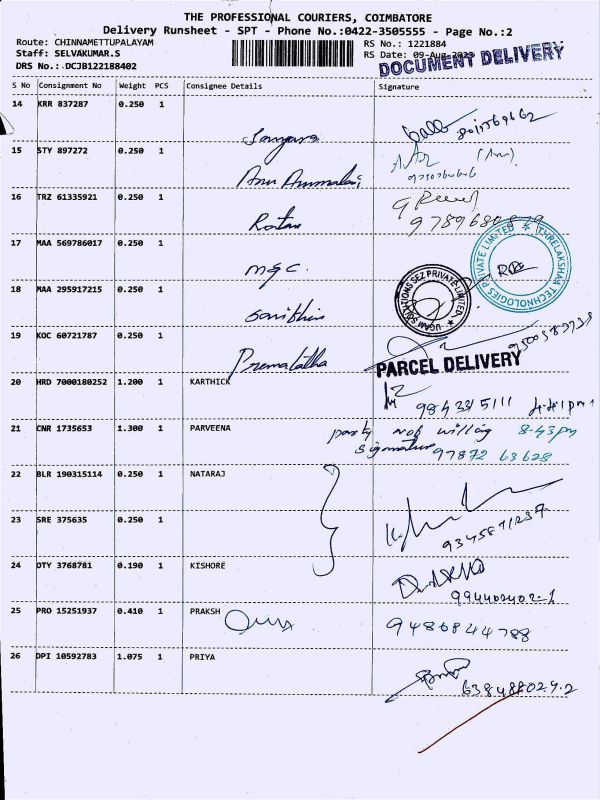 THE PROFESSIONAL COURIERS, COIMBATORE
Delivery Runsheet - SPT - Phone No.:0422-3505555 - Page No.:2
Route: CHINNAMETTUPALAYAM RS No.: 1221884
Staff: SELVAKUMAR.S RS Date: 09-Aug-2023
DRS No.:-DCJB122188402 DOCUMENT DELIVERY
S No Consignment No Weight PCS Consignee Details Signature
14 KRR 837287 0.250 1
15 STY 897272 0.250 1
(Anu)
16 TRZ 61335921 0.250 1
17 MAA 569786017 0.250 1
THRELAKSHAA TECHNOLOGIES PRIVATE LIMITED
MGC.
18 MAA 295917215 0.250 1
UGAM SOLUTIONS SEZ PRIVATE LIMITED
19 KOC 60721787 0.250 1
Premalatha
PARCEL DELIVERY
20 HRD 7000180252 1.200 1 KARTHICK
4.41pm
21 CNR 1735653 1.300 1 PARVEENA
party not willing 8.43pm
signature 97872 63628
22 BLR 190315114 0.250 1 NATARAJ
23 SRE 375635 0.250 1
24 OTY 3768781 0.190 1 KISHORE
25 PRO 15251937 0.410 1 PRAKSH
9486844788
26 DPI 10592783 1.075 1 PRIYA